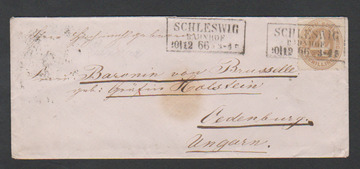 SCHLESWIG
BAHNHOF
10 12 66 3-4 N
SCHLESWIG
BAHNHOF
10 12 66 3-4 N
Baronin von Brusselle
geb. Gräfin Holstein
Oedenburg.
Ungarn.